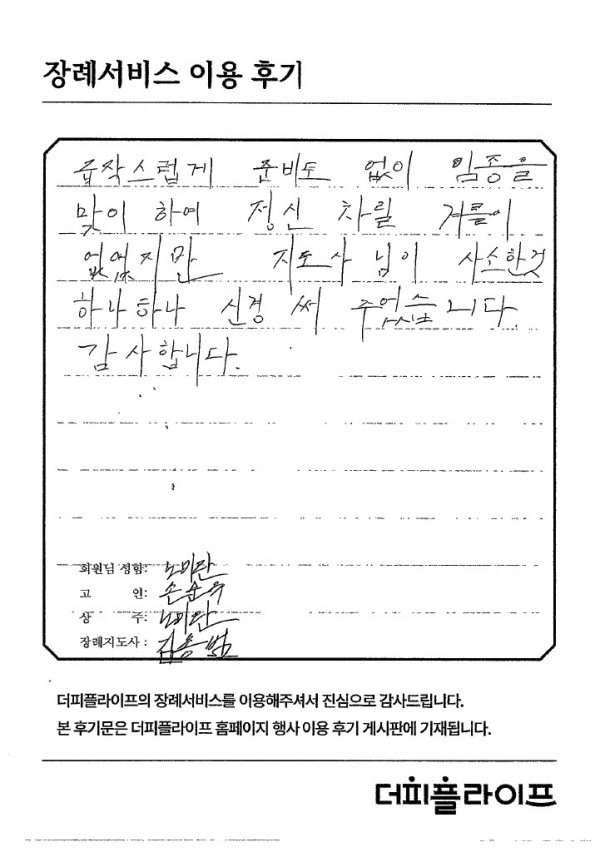 장례서비스 이용 후기
급작스럽게 준비도 없이 임종을
맞이 하여 정신 차릴 겨를이
없었지만 지도사 님이 사소한것
하나하나 신경 써 주었습니다.
감사합니다.
회원님 성함: 노미란
고 인: 손순우
상 주: 노미란
장례지도사 : 김용범
더피플라이프의 장례서비스를 이용해주셔서 진심으로 감사드립니다.
본 후기문은 더피플라이프 홈페이지 행사 이용 후기 게시판에 기재됩니다.
더피플라이프